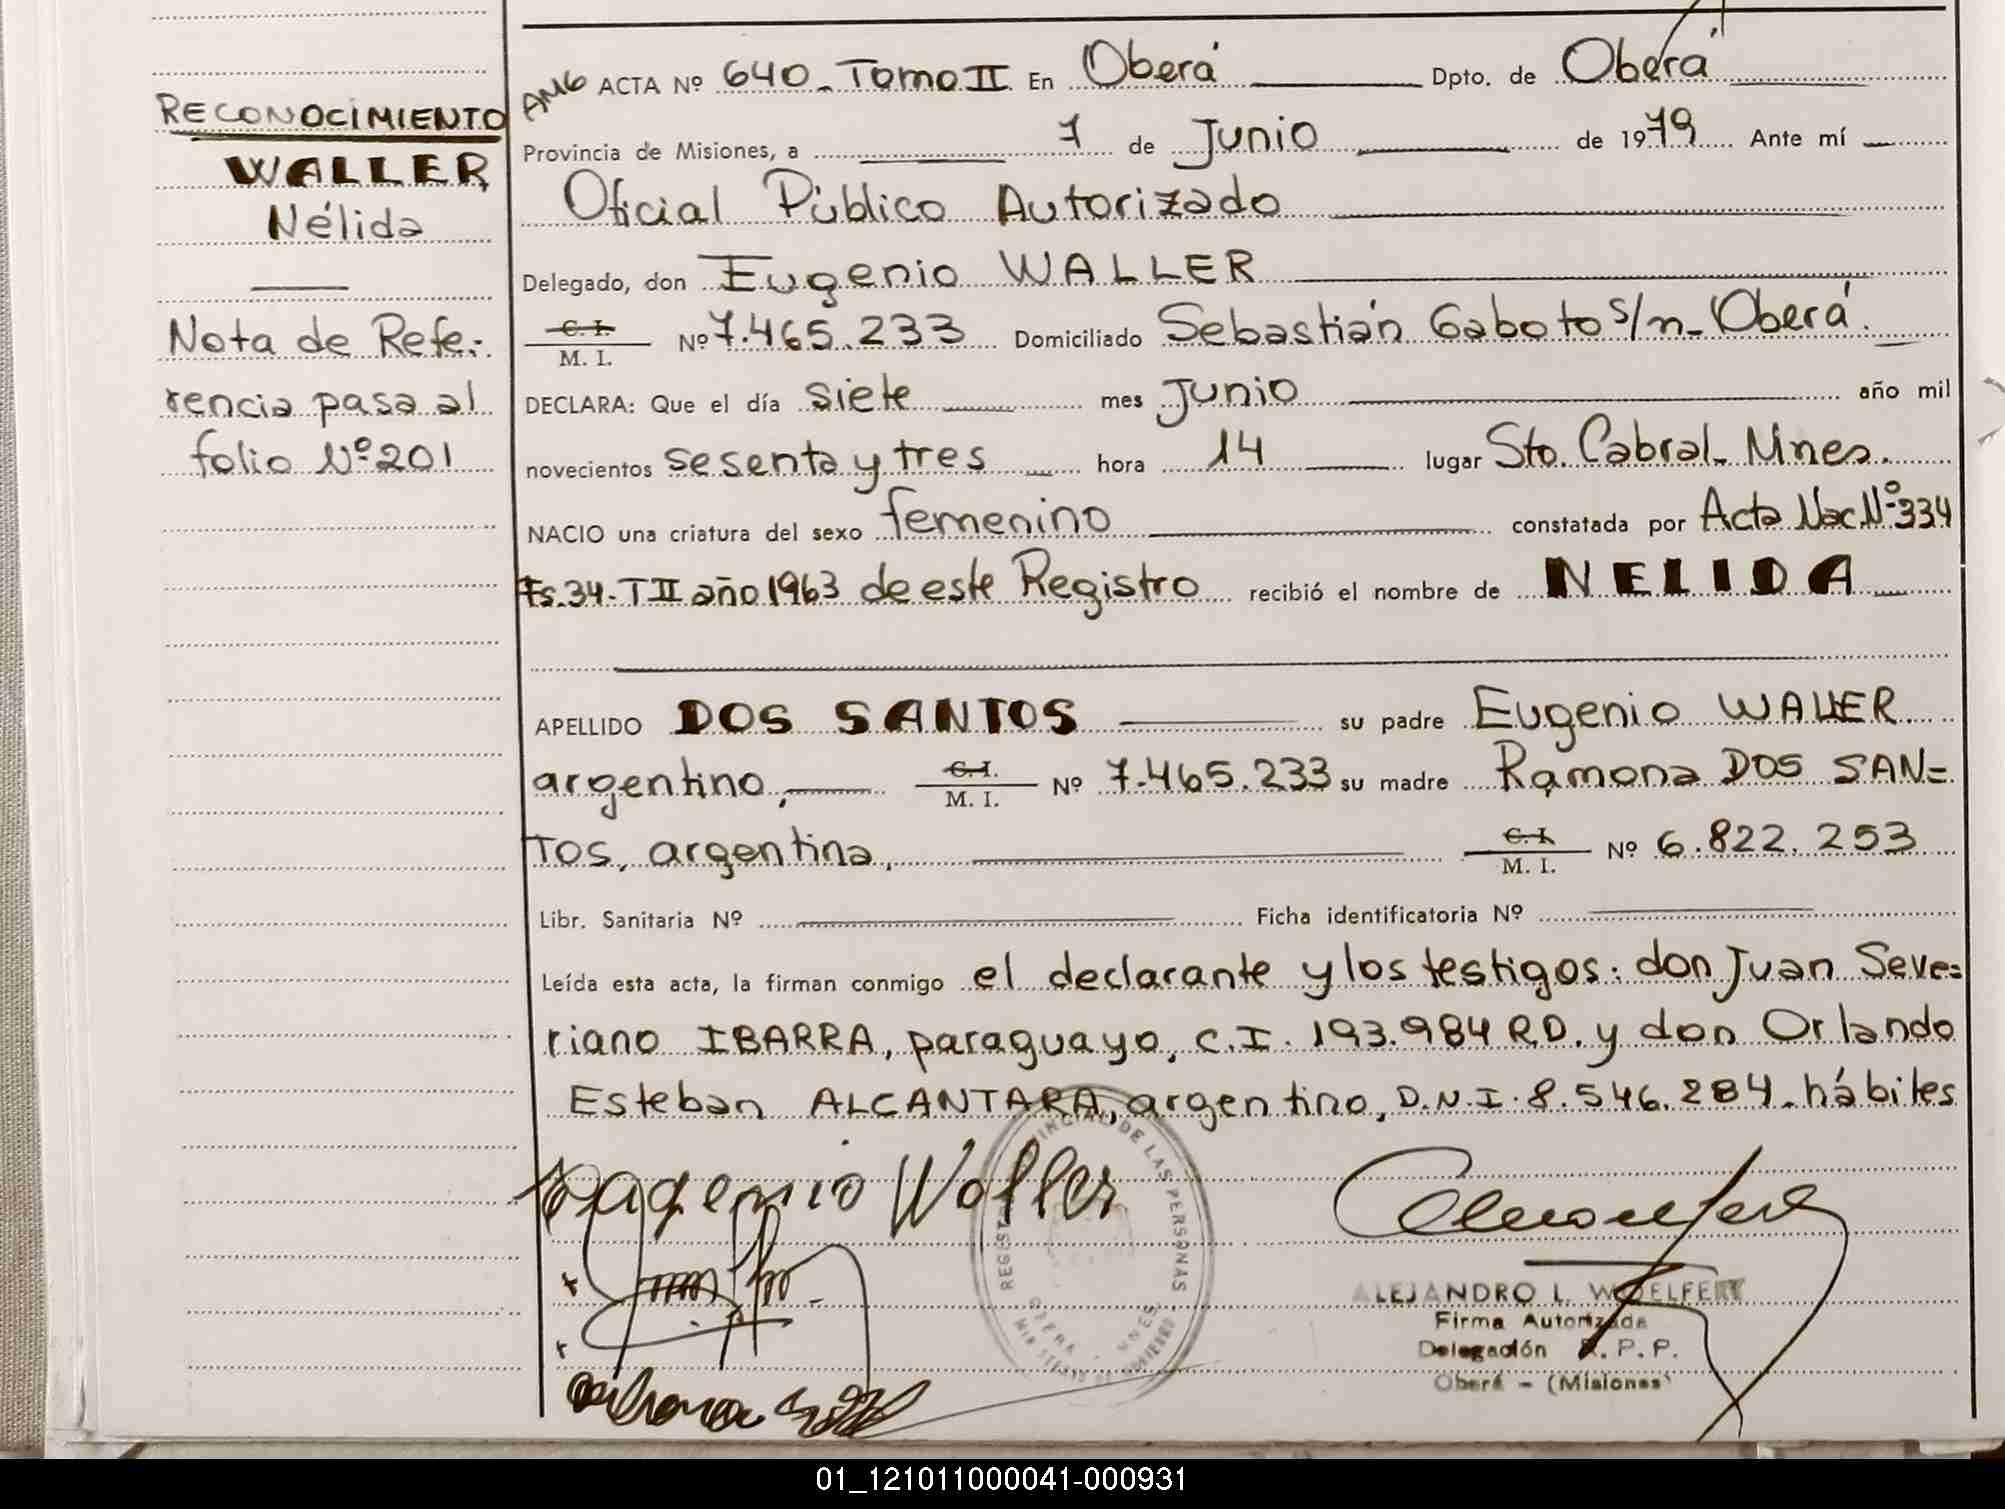 RECONOCIMIENTO
WALLER
Nélida
Nota de Refe-
rencia pasa al
folio Nº 201
ACTA Nº 640 - Tomo II En Oberá Dpto. de Oberá
Provincia de Misiones, a 7 de Junio de 1979 Ante mí
Oficial Público Autorizado
Delegado, don Eugenio WALLER
C. I.
M. I. Nº 7.465.233 Domiciliado Sebastián Gaboto s/n - Oberá.
DECLARA: Que el día siete mes Junio año mil
novecientos sesenta y tres hora 14 lugar Sto. Cabral - Mnes.
NACIO una criatura del sexo femenino constatada por Acta Nac. Nº 334
Fs. 34 - T II año 1963 de este Registro recibió el nombre de NELIDA
APELLIDO DOS SANTOS su padre Eugenio WALLER
argentino, C. I.
M. I. Nº 7.465.233 su madre Ramona DOS SAN=
TOS, argentina, C. I.
M. I. Nº 6.822.253
Libr. Sanitaria Nº Ficha identificatoria Nº
Leída esta acta, la firman conmigo el declarante y los testigos: don Juan Seve=
riano IBARRA, paraguayo, C.I. 193.984 R.D. y don Orlando
Esteban ALCANTARA, argentino, D.N.I. 8.546.284 - hábiles
Waller
REGISTRO PROVINCIAL DE LAS PERSONAS
ALEJANDRO L. WOELFERT
Firma Autorizada
Delegación R. P. P.
Oberá - (Misiones)
01_121011000041-000931